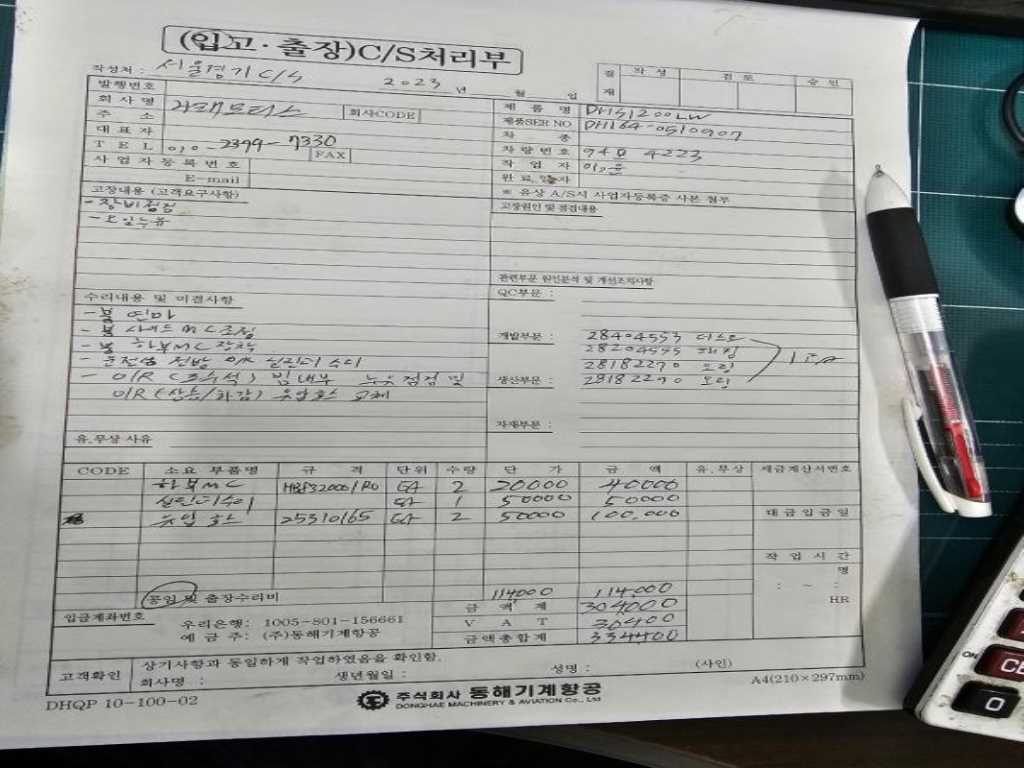 (입고·출장)C/S처리부
작성처 : 서울경기 C/S
2023 년 월 일
결재 작성 검토 승인
발행번호
회사명 회사CODE
주소
대표자
TEL 010-2399-7330 FAX
사업자등록번호
E-mail
제품명
제품SER NO DH164-0510907
차종
차량번호 4223
작업자
완료일자
※ 유상 A/S시 사업자등록증 사본 첨부
고장내용 (고객요구사항)
- 장비점검
- 오일누유
고장원인 및 점검내용
관련부문 원인분석 및 개선조치사항
QC부문 :
개발부문 : 28404553
28204555 패킹
28182270 오링
생산부문 : 28182290 오링
자재부문 :
수리내용 및 미결사항
- 붐 연마
- 붐 사이드 MC조정
- 붐 하부MC 장착
- 운전석 전방 O/R 실린더 수리
- O/R (조수석) 빔내부 누유 점검 및
O/R (신축/화감) 유압호스 교체
유.무상 사유
CODE 소요 부품명 규격 단위 수량 단가 금액 유.무상 세금계산서번호
하부MC EA 2 20000 40000
실린더수리 EA 1 50000 50000
유압호스 25310165 EA 2 50000 100,000
대금입금일
작업시간
명
: ~ :
HR
공임 및 출장수리비 114000 114,000
입금계좌번호
우리은행: 1005-801-156661
예금주: (주)동해기계항공
금액계 304000
VAT 30400
금액총합계 334400
고객확인
상기사항과 동일하게 작업하였음을 확인함.
회사명 : 생년월일 : 성명 : (사인)
DHQP 10-100-02
주식회사 동해기계항공
DONGHAE MACHINERY & AVIATION Co., Ltd
A4(210×297mm)
ON
0